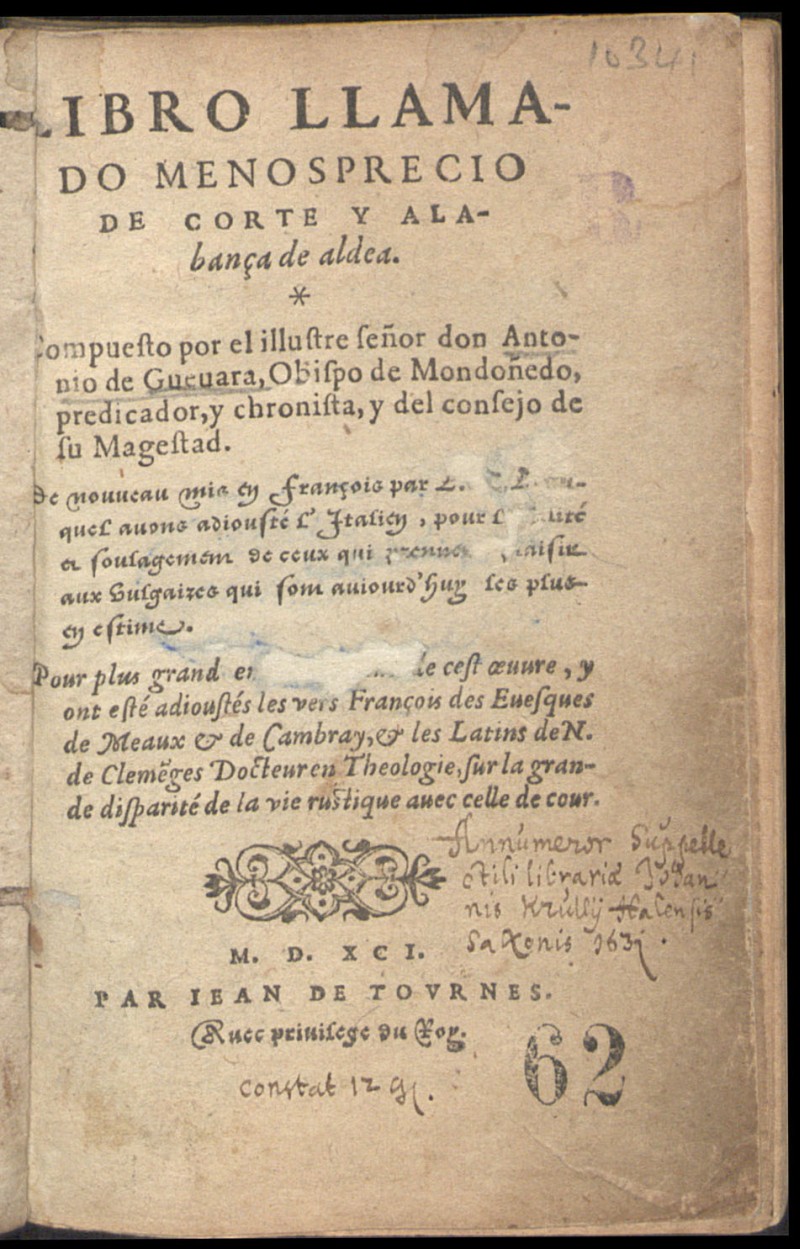 10341
LIBRO LLAMA-
DO MENOSPRECIO
DE CORTE Y ALA-
bança de aldea.
*
Compuesto por el illustre señor don Anto-
nio de Gueuara, Obispo de Mondoñedo,
predicador, y chronista, y del consejo de
su Magestad.
De nouueau mis en François par L.
quel auons adiousté l'Italien, pour l'
et soulagement de ceux qui prennent plaisir
aux vulgaires qui sont auiourd'huy les plus
en estime.
Pour plus grand de cest œuure, y
ont esté adioustés les vers François des Euesques
de Meaux & de Cambray, & les Latins de N.
de Clemẽges Docteur en Theologie, sur la gran-
de disparité de la vie rustique auec celle de cour.
Annumeror Suppelle
ctili librariæ Johan
nis Krullij Halensis
Saxonis 1631.
M. D. XCI.
PAR IEAN DE TOVRNES.
Auec priuilege du Roy.
constat 12 gl.
62